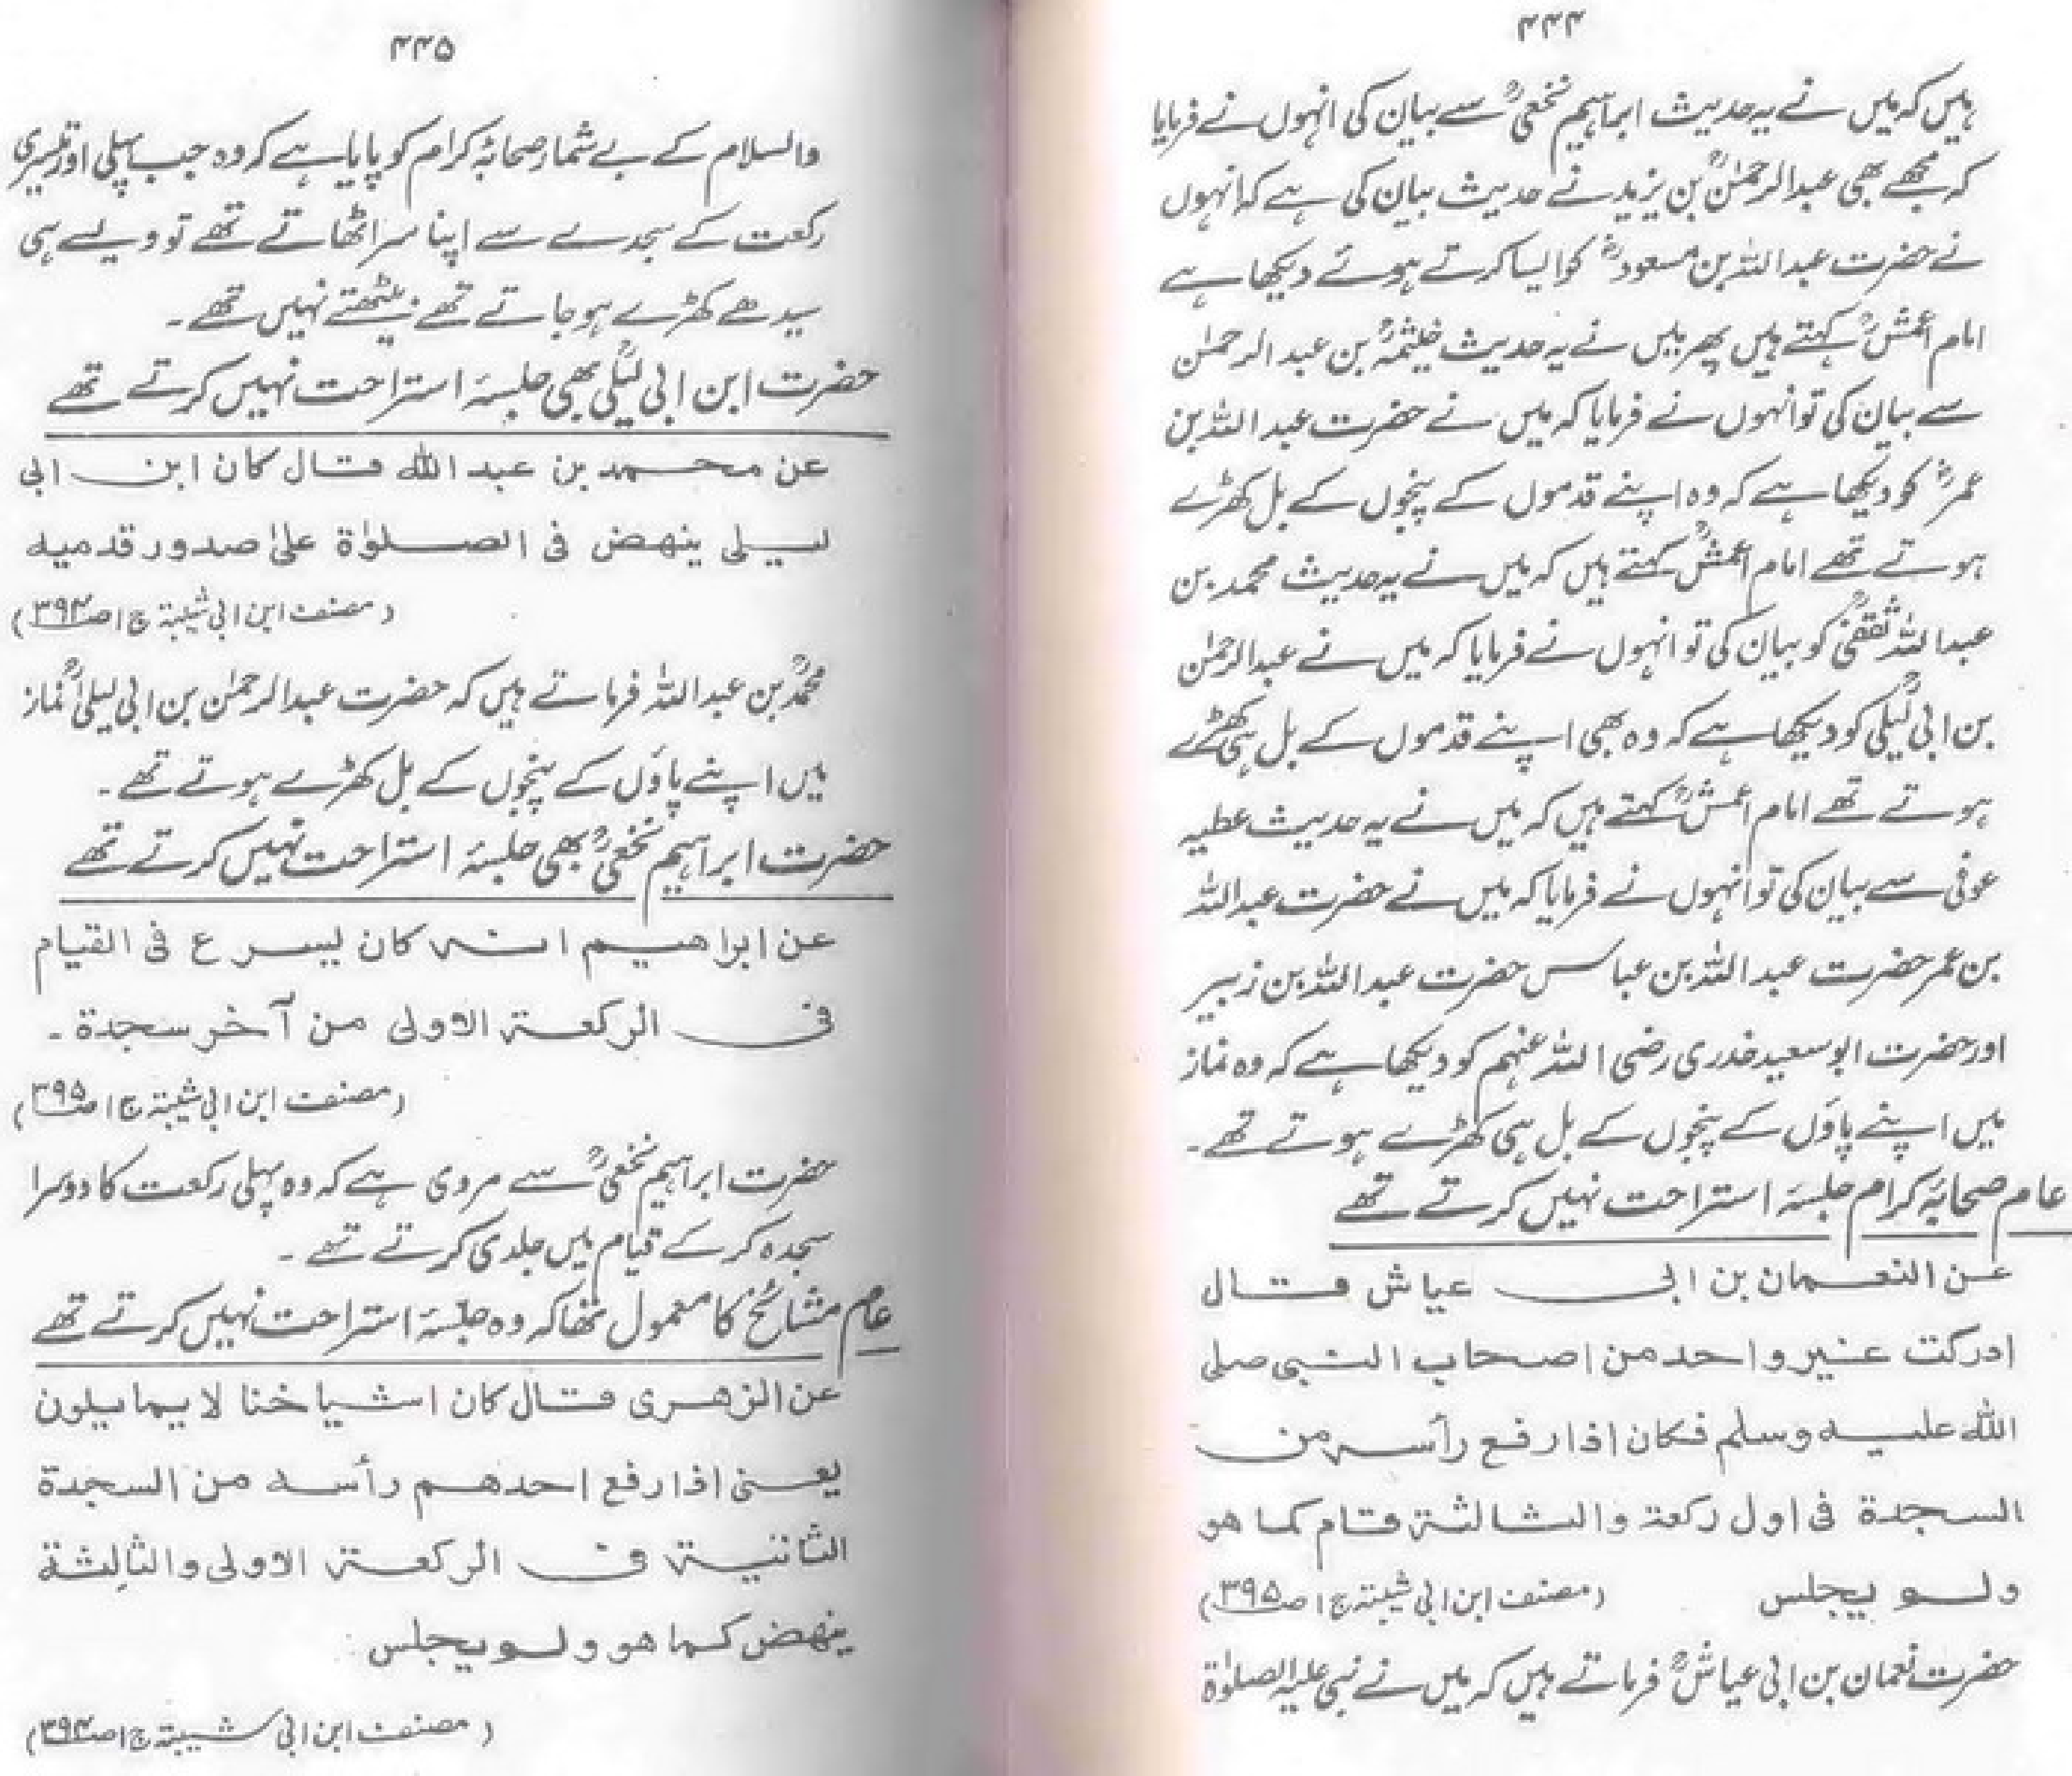 ۴۴۴
ہیں کہ میں نے یہ حدیث ابراہیم نخعیؒ سے بیان کی انہوں نے فرمایا
کہ مجھے بھی عبدالرحمٰنؒ بن یزید نے حدیث بیان کی ہے کہ انہوں
نے حضرت عبداللہ بن مسعودؓ کو ایسا کرتے ہوئے دیکھا ہے
امام اعمشؒ کہتے ہیں پھر میں نے یہ حدیث خیثمہؒ بن عبد الرحمٰن
سے بیان کی تو انہوں نے فرمایا کہ میں نے حضرت عبد اللہ بن
عمرؓ کو دیکھا ہے کہ وہ اپنے قدموں کے پنجوں کے بل کھڑے
ہوتے تھے امام اعمشؒ کہتے ہیں کہ میں نے یہ حدیث محمد بن
عبداللہ ثقفیؒ کو بیان کی تو انہوں نے فرمایا کہ میں نے عبدالرحمٰن
بن ابی لیلیٰؒ کو دیکھا ہے کہ وہ بھی اپنے قدموں کے بل ہی کھڑے
ہوتے تھے امام اعمشؒ کہتے ہیں کہ میں نے یہ حدیث عطیہ
عوفی سے بیان کی تو انہوں نے فرمایا کہ میں نے حضرت عبداللہ
بن عمر حضرت عبد اللہ بن عباس حضرت عبداللہ بن زبیر
اور حضرت ابو سعید خدری رضی اللہ عنہم کو دیکھا ہے کہ وہ نماز
میں اپنے پاؤں کے پنجوں کے بل ہی کھڑے ہوتے تھے۔
عام صحابۂ کرام جلسۂ استراحت نہیں کرتے تھے
عن النعمان بن ابی عیاش قال
ادرکت غیر واحد من اصحاب النبی صلی
اللہ علیہ وسلم فکان اذا رفع رأسہ من
السجدۃ فی اول رکعۃ والثالثۃ قام کما هو
ولم یجلس (مصنف ابن ابی شیبۃ ج۱ ص۳۹۵)
حضرت نعمان بن ابی عیاشؒ فرماتے ہیں کہ میں نے نبی علیہ الصلوٰۃ
۴۴۵
والسلام کے بے شمار صحابۂ کرام کو پایا ہے کہ وہ جب پہلی اور تیسری
رکعت کے سجدے سے اپنا سر اٹھاتے تھے تو ویسے ہی
سیدھے کھڑے ہو جاتے تھے بیٹھتے نہیں تھے۔
حضرت ابن ابی لیلیٰؒ بھی جلسۂ استراحت نہیں کرتے تھے
عن محمد بن عبد اللہ قال کان ابن ابی
لیلی ینهض فی الصلوٰۃ علیٰ صدور قدمیه
(مصنف ابن ابی شیبۃ ج۱ ص۳۹۴)
محمدؒ بن عبداللہ فرماتے ہیں کہ حضرت عبدالرحمٰن بن ابی لیلیٰؒ نماز
میں اپنے پاؤں کے پنجوں کے بل کھڑے ہوتے تھے۔
حضرت ابراہیم نخعیؒ بھی جلسۂ استراحت نہیں کرتے تھے
عن ابراهیم انہ کان یسرع فی القیام
فی الرکعۃ الاولی من آخر سجدۃ۔
(مصنف ابن ابی شیبۃ ج۱ ص۳۹۵)
حضرت ابراہیم نخعیؒ سے مروی ہے کہ وہ پہلی رکعت کا دوسرا
سجدہ کر کے قیام میں جلدی کرتے تھے۔
عام مشائخ کا معمول تھا کہ وہ جلسۂ استراحت نہیں کرتے تھے
عن الزهری قال کان اشیاخنا لا یمایلون
یعنی اذا رفع احدهم رأسه من السجدۃ
الثانیۃ فی الرکعۃ الاولی والثالثۃ
ینهض کما هو ولم یجلس
(مصنف ابن ابی شیبۃ ج۱ ص۳۹۴)